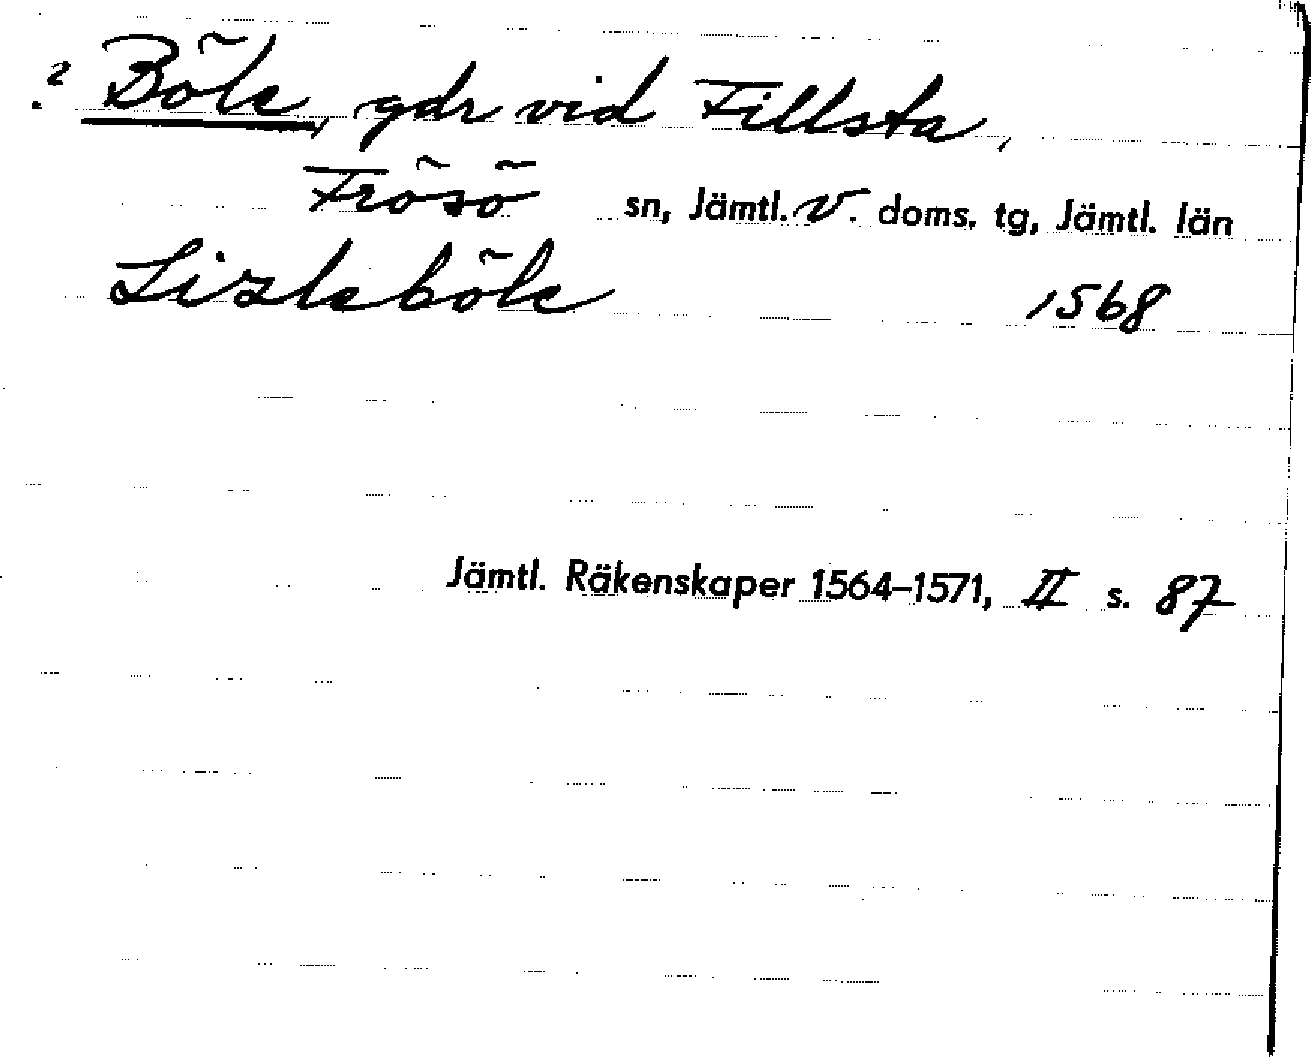 ? Böle, gdr vid Fillsta,
Frösö sn, Jämtl. V. doms. tg, Jämtl. län
Lizleböle 1568
Jämtl. Räkenskaper 1564–1571, II s. 87